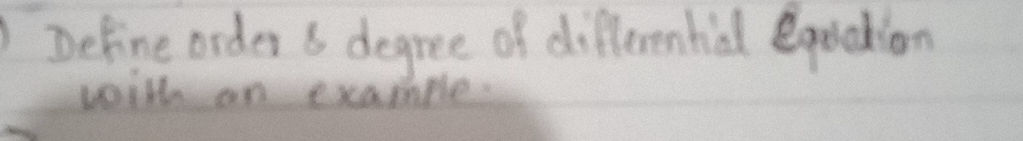 ) Define order & degree of differential Equation
with an example.